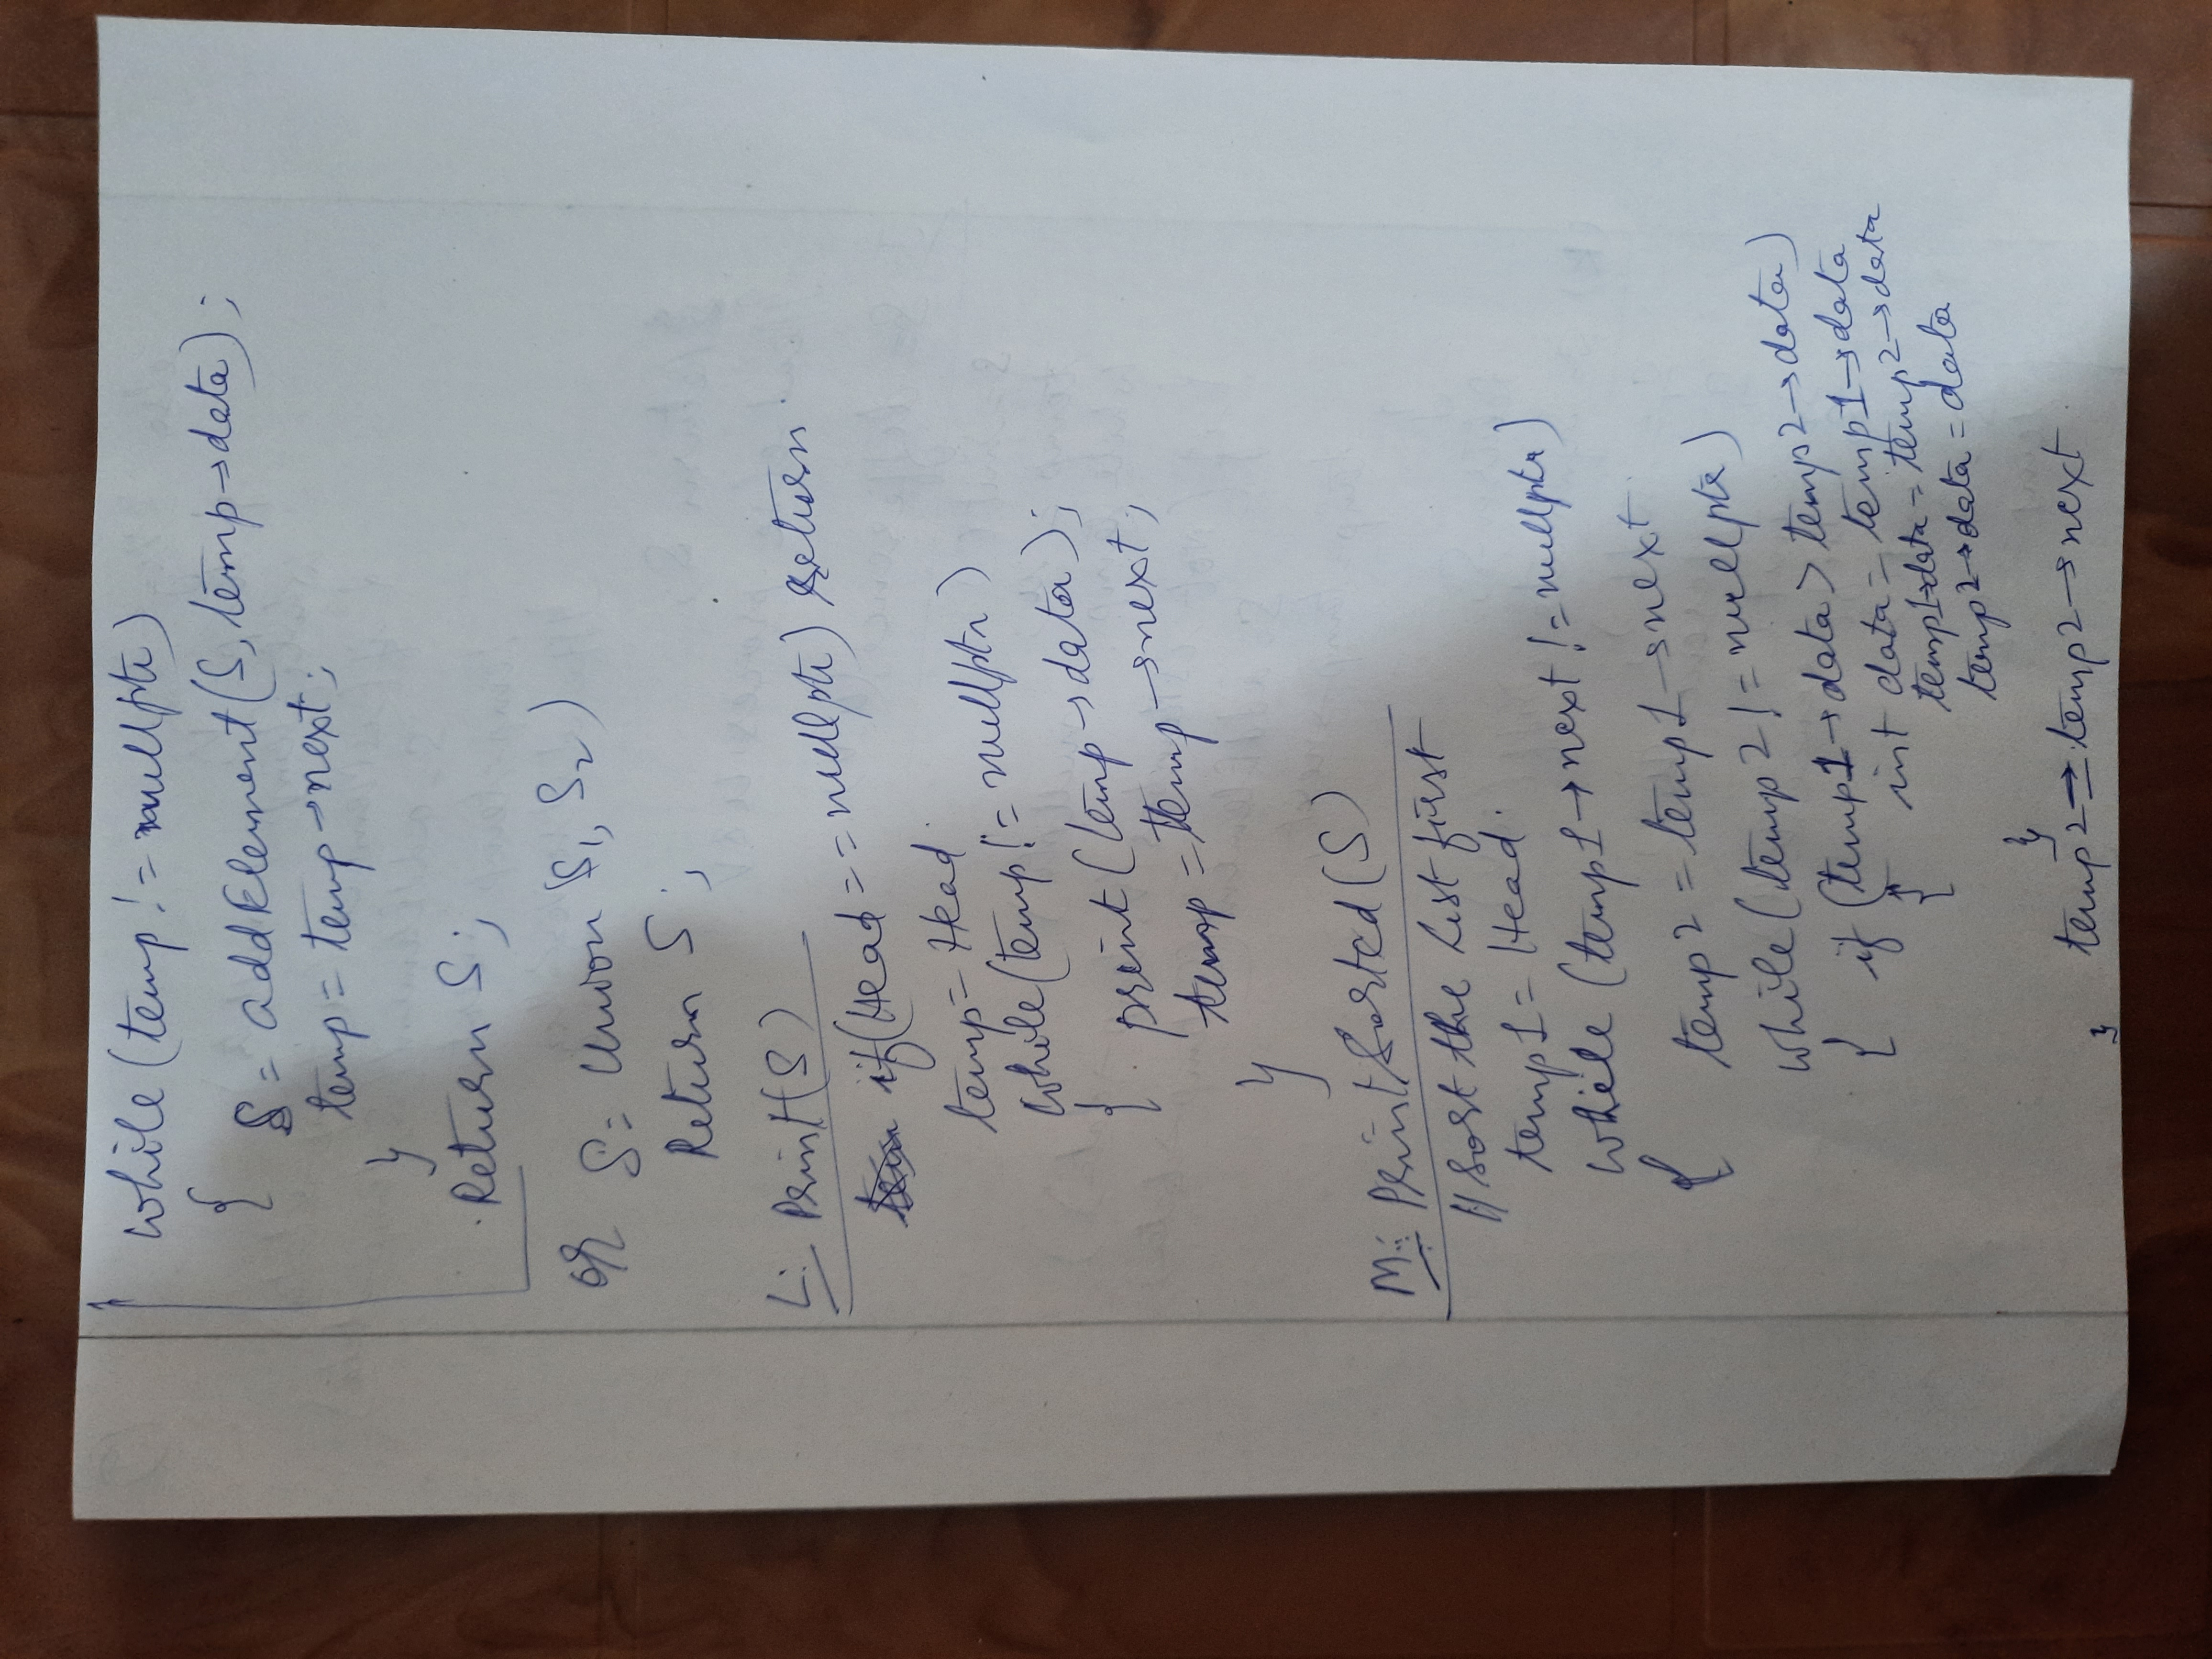 while (temp != nullptr)
{
S = addElement(S, temp→data);
temp = temp→next;
}
Return S;
or S = Union S1, S2)
Return S;
L: Print(S)
if(Head == nullptr) return.
temp = Head.
while (temp != nullptr)
{ print(temp→data);
temp = temp→next;
}
M: PrintSorted(S)
// Sort the list first
temp1 = Head.
while (temp1→next != nullptr)
{
temp2 = temp1→next
while (temp2 != nullptr)
{ if (temp1→data > temp2→data)
{ int data = temp1→data
temp1→data = temp2→data
temp2→data = data
}
temp2 → temp2→next
}